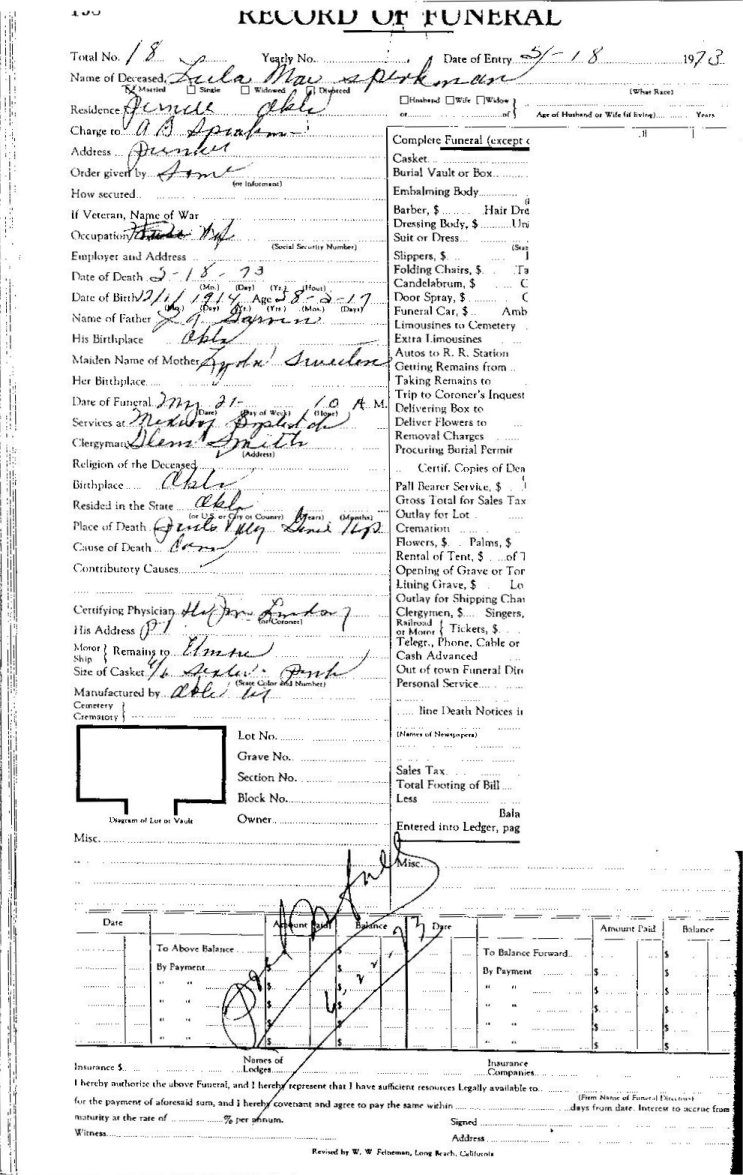 RECORD OF FUNERAL
Total No. 18 Yearly No. Date of Entry 5-18 1973
Name of Deceased, Lula Mae
Married Single Widowed Divorced (What Race)
Residence Okla
Husband Wife Widow
or of Age of Husband or Wife (if living) Years
Charge to A B
Address
Order given by Same
(or Informant)
How secured
If Veteran, Name of War
Occupation House Wife
(Social Security Number)
Employer and Address
Date of Death 5-18-73
(Mo.) (Day) (Yr.) (Hour)
Date of Birth 12/1/1914 Age 58-5-17
(Mo.) (Day) (Yr.) (Yrs.) (Mos.) (Days)
Name of Father
His Birthplace Okla
Maiden Name of Mother
Her Birthplace
Date of Funeral May 21- 10 A M.
(Date) (Day of Week) (Hour)
Services at Baptist ch
Clergyman Glenn Smith
(Address)
Religion of the Deceased
Birthplace Okla
Resided in the State Okla
(or U.S. or City or County) (Years) (Months)
Place of Death Valley
Cause of Death
Contributory Causes
Certifying Physician
(or Coroner)
His Address
Motor Ship Remains to Elmore
Size of Casket 6/6
(State Color and Number)
Manufactured by
Cemetery
Crematory
Lot No.
Grave No.
Section No.
Block No.
Owner
Diagram of Lot or Vault
Misc.
Complete Funeral (except
Casket
Burial Vault or Box
Embalming Body
Barber, $ Hair Dre
Dressing Body, $ Un
Suit or Dress
Slippers, $
Folding Chairs, $ Ta
Candelabrum, $ C
Door Spray, $ C
Funeral Car, $ Amb
Limousines to Cemetery
Extra Limousines
Autos to R. R. Station
Getting Remains from
Taking Remains to
Trip to Coroner's Inquest
Delivering Box to
Deliver Flowers to
Removal Charges
Procuring Burial Permit
Certif. Copies of Dea
Pall Bearer Service, $
Gross Total for Sales Tax
Outlay for Lot
Cremation
Flowers, $ Palms, $
Rental of Tent, $ of T
Opening of Grave or Tom
Lining Grave, $ Lo
Outlay for Shipping Char
Clergymen, $ Singers,
Railroad or Motor Tickets, $
Telegr., Phone, Cable or
Cash Advanced
Out of town Funeral Dire
Personal Service
line Death Notices in
(Names of Newspapers)
Sales Tax
Total Footing of Bill
Less
Bala
Entered into Ledger, pag
Misc.
Date Amount Paid Balance Date Amount Paid Balance
To Above Balance To Balance Forward
By Payment $ $ By Payment $ $
" " $ $ " " $ $
" " $ $ " " $ $
" " $ $ " " $ $
" " $ $ " " $ $
Insurance $ Names of Lodges Insurance Companies
I hereby authorize the above Funeral, and I hereby represent that I have sufficient resources Legally available to
(Firm Name of Funeral Directors)
for the payment of aforesaid sum, and I hereby covenant and agree to pay the same within days from date. Interest to accrue from
maturity at the rate of % per annum. Signed
Witness Address
Revised by W. W. Feineman, Long Beach, California